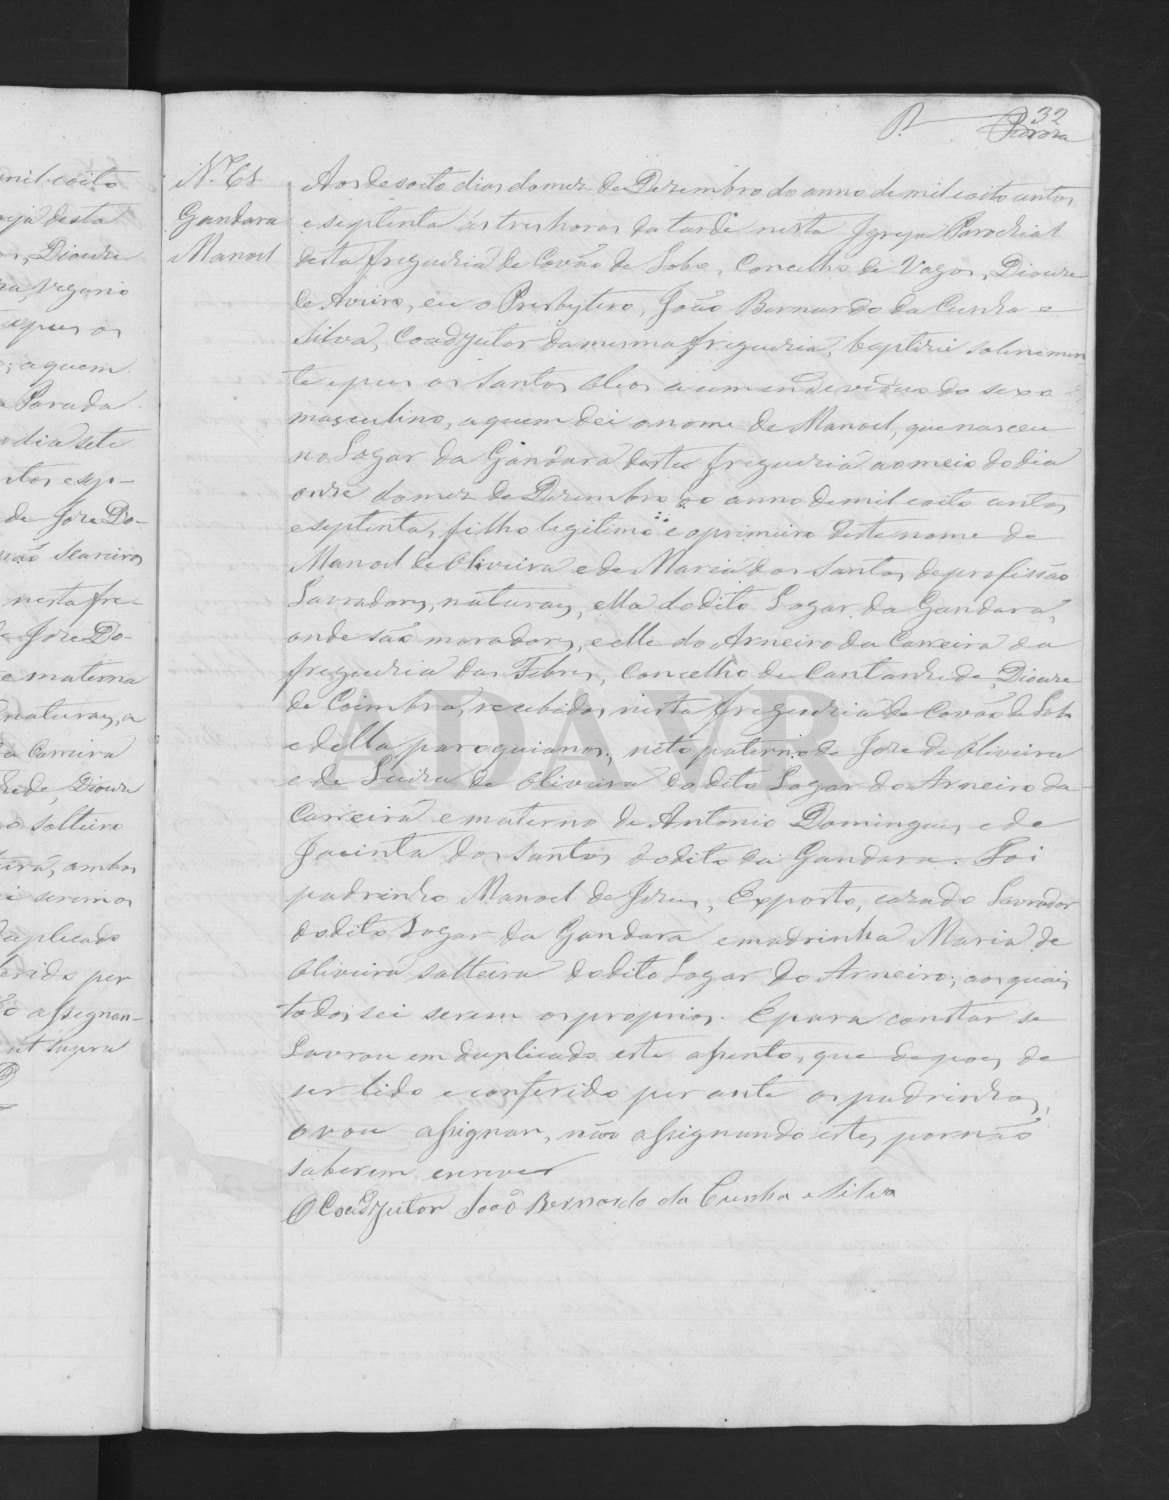 32
P.
N.º 61
Gandara
Manoel
Aos desoito dias do mez de Dezembro do anno de mil e oito centos
e septenta ás tres horas da tarde nesta Igreja Parochial
desta freguezia de Covão do Lobo, Concelho de Vagos, Diocese
de Aveiro, eu o Presbytero, João Bernardo da Cunha e
Silva, Coadjutor da mesma freguezia, baptizei solemnemen
te e puz os Santos Oleos a um individuo do sexo
masculino, a quem dei o nome de Manoel, que nasceu
no Logar da Gandara desta freguezia ao meio do dia
onze do mez de Dezembro do anno de mil e oito centos
e septenta, filho legitimo e o primeiro deste nome de
Manoel de Oliveira e de Maria dos Santos, de profissão
Lavradores, naturaes, ella do dito Logar da Gandara,
onde são moradores, e elle do Arneiro da Carreira da
freguezia das Febres, Concelho de Cantanhede, Diocese
de Coimbra, recebidos nesta freguezia de Covão do Lobo
e della paroquianos; neto paterno de Joze de Oliveira
e de Luiza de Oliveira do dito Logar do Arneiro da
Carreira e materno de Antonio Domingues e de
Jacinta dos Santos do dito da Gandara. Foi
padrinho Manoel de Jezus, Exposto, cazado Lavrador
do dito Logar da Gandara e madrinha Maria de
Oliveira solteira do dito Logar do Arneiro; aos quaes
todos sei serem os proprios. E para constar se
Lavrou em duplicado este assento, que depois de
ser lido e conferido perante os padrinhos,
o vou assignar, não assignando estes por não
saberem escrever
O Coadjutor João Bernardo da Cunha e Silva
mil e oito
eja desta
Diocese
Vagario
e puz os
; a quem
Parada
dia sete
ntos e sep-
de Joze Do-
nesta fre-
de Joze Do-
e materna
naturaes, a
Carreira
hede, Diocese
o solteiro
ambos
i serem os
duplicado
ferido per
assignan-
ut supra
ADAVR